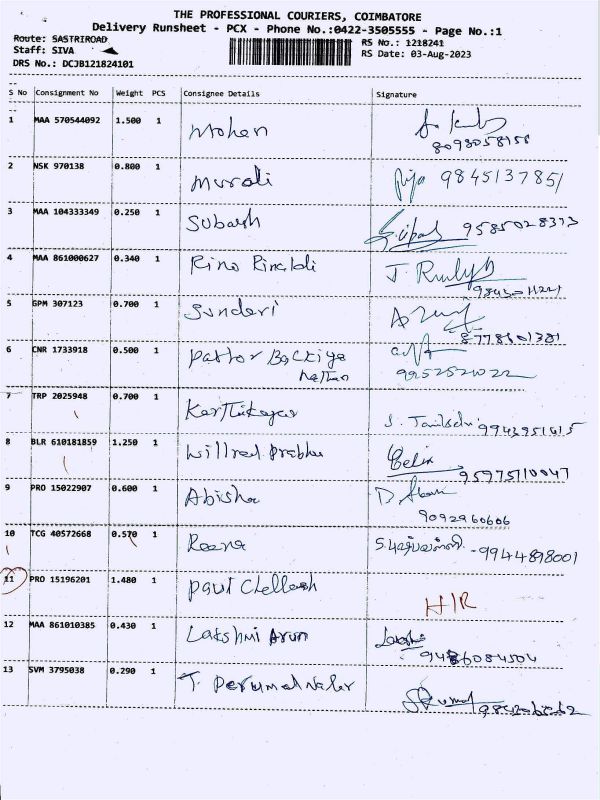 THE PROFESSIONAL COURIERS, COIMBATORE
Delivery Runsheet - PCX - Phone No.:0422-3505555 - Page No.:1
Route: SASTRIROAD
RS No.: 1218241
Staff: SIVA
RS Date: 03-Aug-2023
DRS No.: DCJB121824101
S No Consignment No Weight PCS Consignee Details Signature
1 MAA 570544092 1.500 1 Mohan
8098058158
2 NSK 970138 0.800 1 Murali 9845137851
3 MAA 104333349 0.250 1 Subash 9585028373
4 MAA 861000627 0.340 1 Rino Rinaldi
5 GPM 307123 0.700 1 Sunderi
8778601381
6 CNR 1733918 0.500 1 Pastor Backiya
Nathan 9952521022
7 TRP 2025948 0.700 1 Karthikeyan
9943951615
8 BLR 610181859 1.250 1 Willred Prabhu
95975710047
9 PRO 15022907 0.600 1 Abisha
9092960606
10 TCG 40572668 0.570 1 Reena 9944898001
11 PRO 15196201 1.480 1 Paul Chellash
H/R
12 MAA 861010385 0.430 1 Lakshmi Arun
9486084504
13 SVM 3795038 0.290 1 T. Perumal Nader